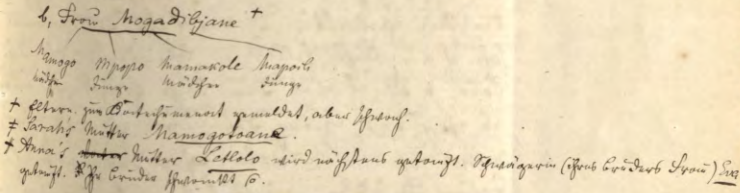 b, Frau Mogadibjane +
Mamogo Mpopo Mamakole Mapoile
Mädchen Junge Mädchen Junge
+ Eltern zum gemeldet, aber schwach.
‡ Sarah's Mutter Mamogotoane.
‡ Anna's Mutter Letlolo wird nächstens getauft. Schwägerin (ihres Bruders Frau)
getauft. Ihr Bruder